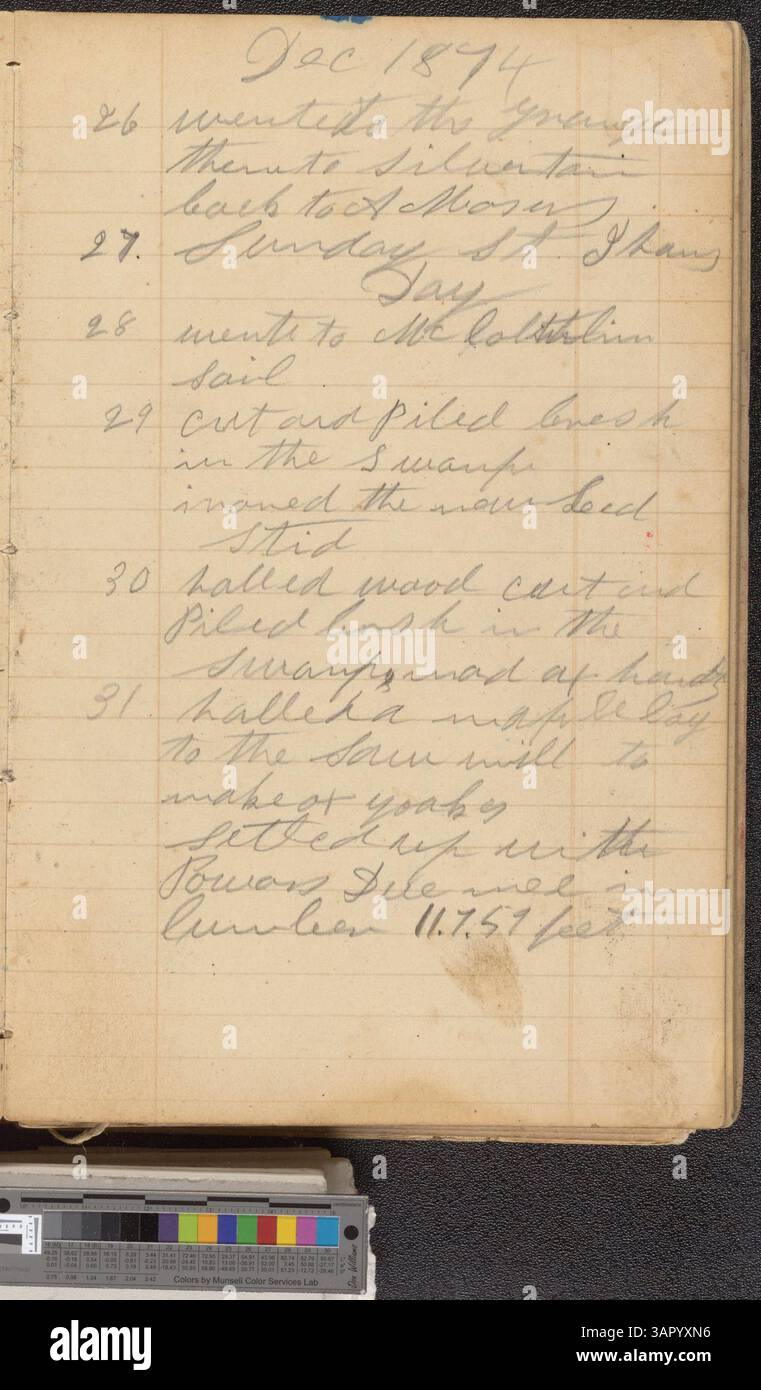 Dec 1874
26 wente to the grange
then to Silvertain
back to A Mosers
27. Sunday St. Jhans
Day
28 wente to Mc
Sail
29 cut and Piled bresh
in the swamp
moved the new bed
stid
30 halled wood cut and
Piled brsh in the
swamp, mad ax handls
31 halled a maple log
to the saw mill to
make ox yoakes
setled up with
Powars Due mee in
lumber 11.7.59 feet
alamy
Colors by Munsell Color Services Lab
Image ID: 3APYXN6
www.alamy.com